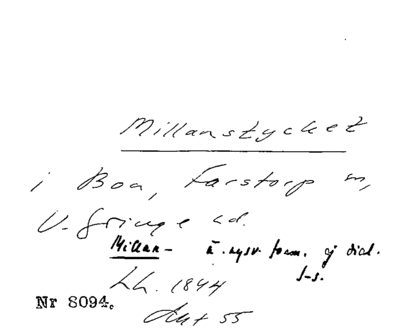 Millanstycket
i Boa, Farstorp sn,
V. Göinge hd.
Millan- ä. nysv. form. ej dial.
f-s.
Lh. 1844
Nr 8094. Akt 55